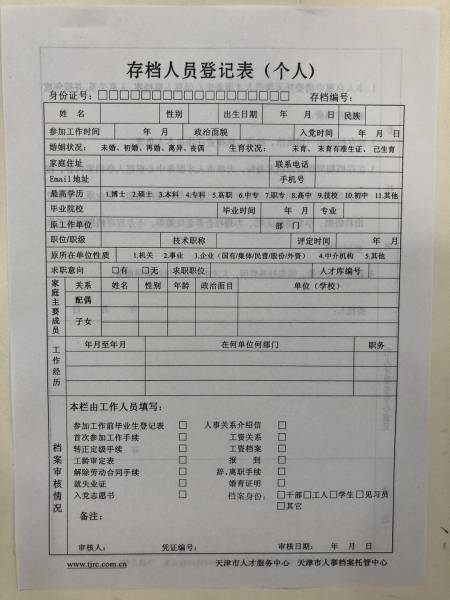 存档人员登记表（个人）
身份证号：□□□□□□□□□□□□□□□□□□ 存档编号：
姓 名 性别 出生日期 年 月 日 民族
参加工作时间 年 月 政治面貌 入党时间 年 月 日
婚姻状况： 未婚、初婚、再婚、离异、丧偶 生育状况： 未育、未育有准生证、已生育
家庭住址 联系电话
Email地址 手机号
最高学历 1.博士 2.硕士 3.本科 4.专科 5.高职 6.中专 7.职专 8.高中 9.技校 10.初中 11.其他
毕业院校 毕业时间 年 月 专业
原工作单位 部 门
职位/职级 技术职称 评定时间 年 月
原所在单位性质 1.机关 2.事业 3.企业（国有/集体/民营/股份/外资） 4.中介机构 5.其他
求职意向 □有 □无 求职职位 人才库编号
家庭主要成员 关系 姓名 性别 年龄 政治面目 单位（学校）
配偶
子女
工作经历 年月至年月 在何单位何部门 职务
档案审核情况 本栏由工作人员填写：
参加工作前毕业生登记表 □ 人事关系介绍信 □
首次参加工作手续 □ 工资关系 □
转正定级手续 □ 工资档案 □
工龄审定表 □ 报 到 □
解除劳动合同手续 □ 辞、离职手续 □
就失业证 □ 婚育证明 □
入党志愿书 □ 档案身份： □干部□工人□学生□见习员
□其它
备注：
审核人： 凭证编号： 审核日期： 年 月 日
www.tjrc.com.cn 天津市人才服务中心 天津市人事档案托管中心